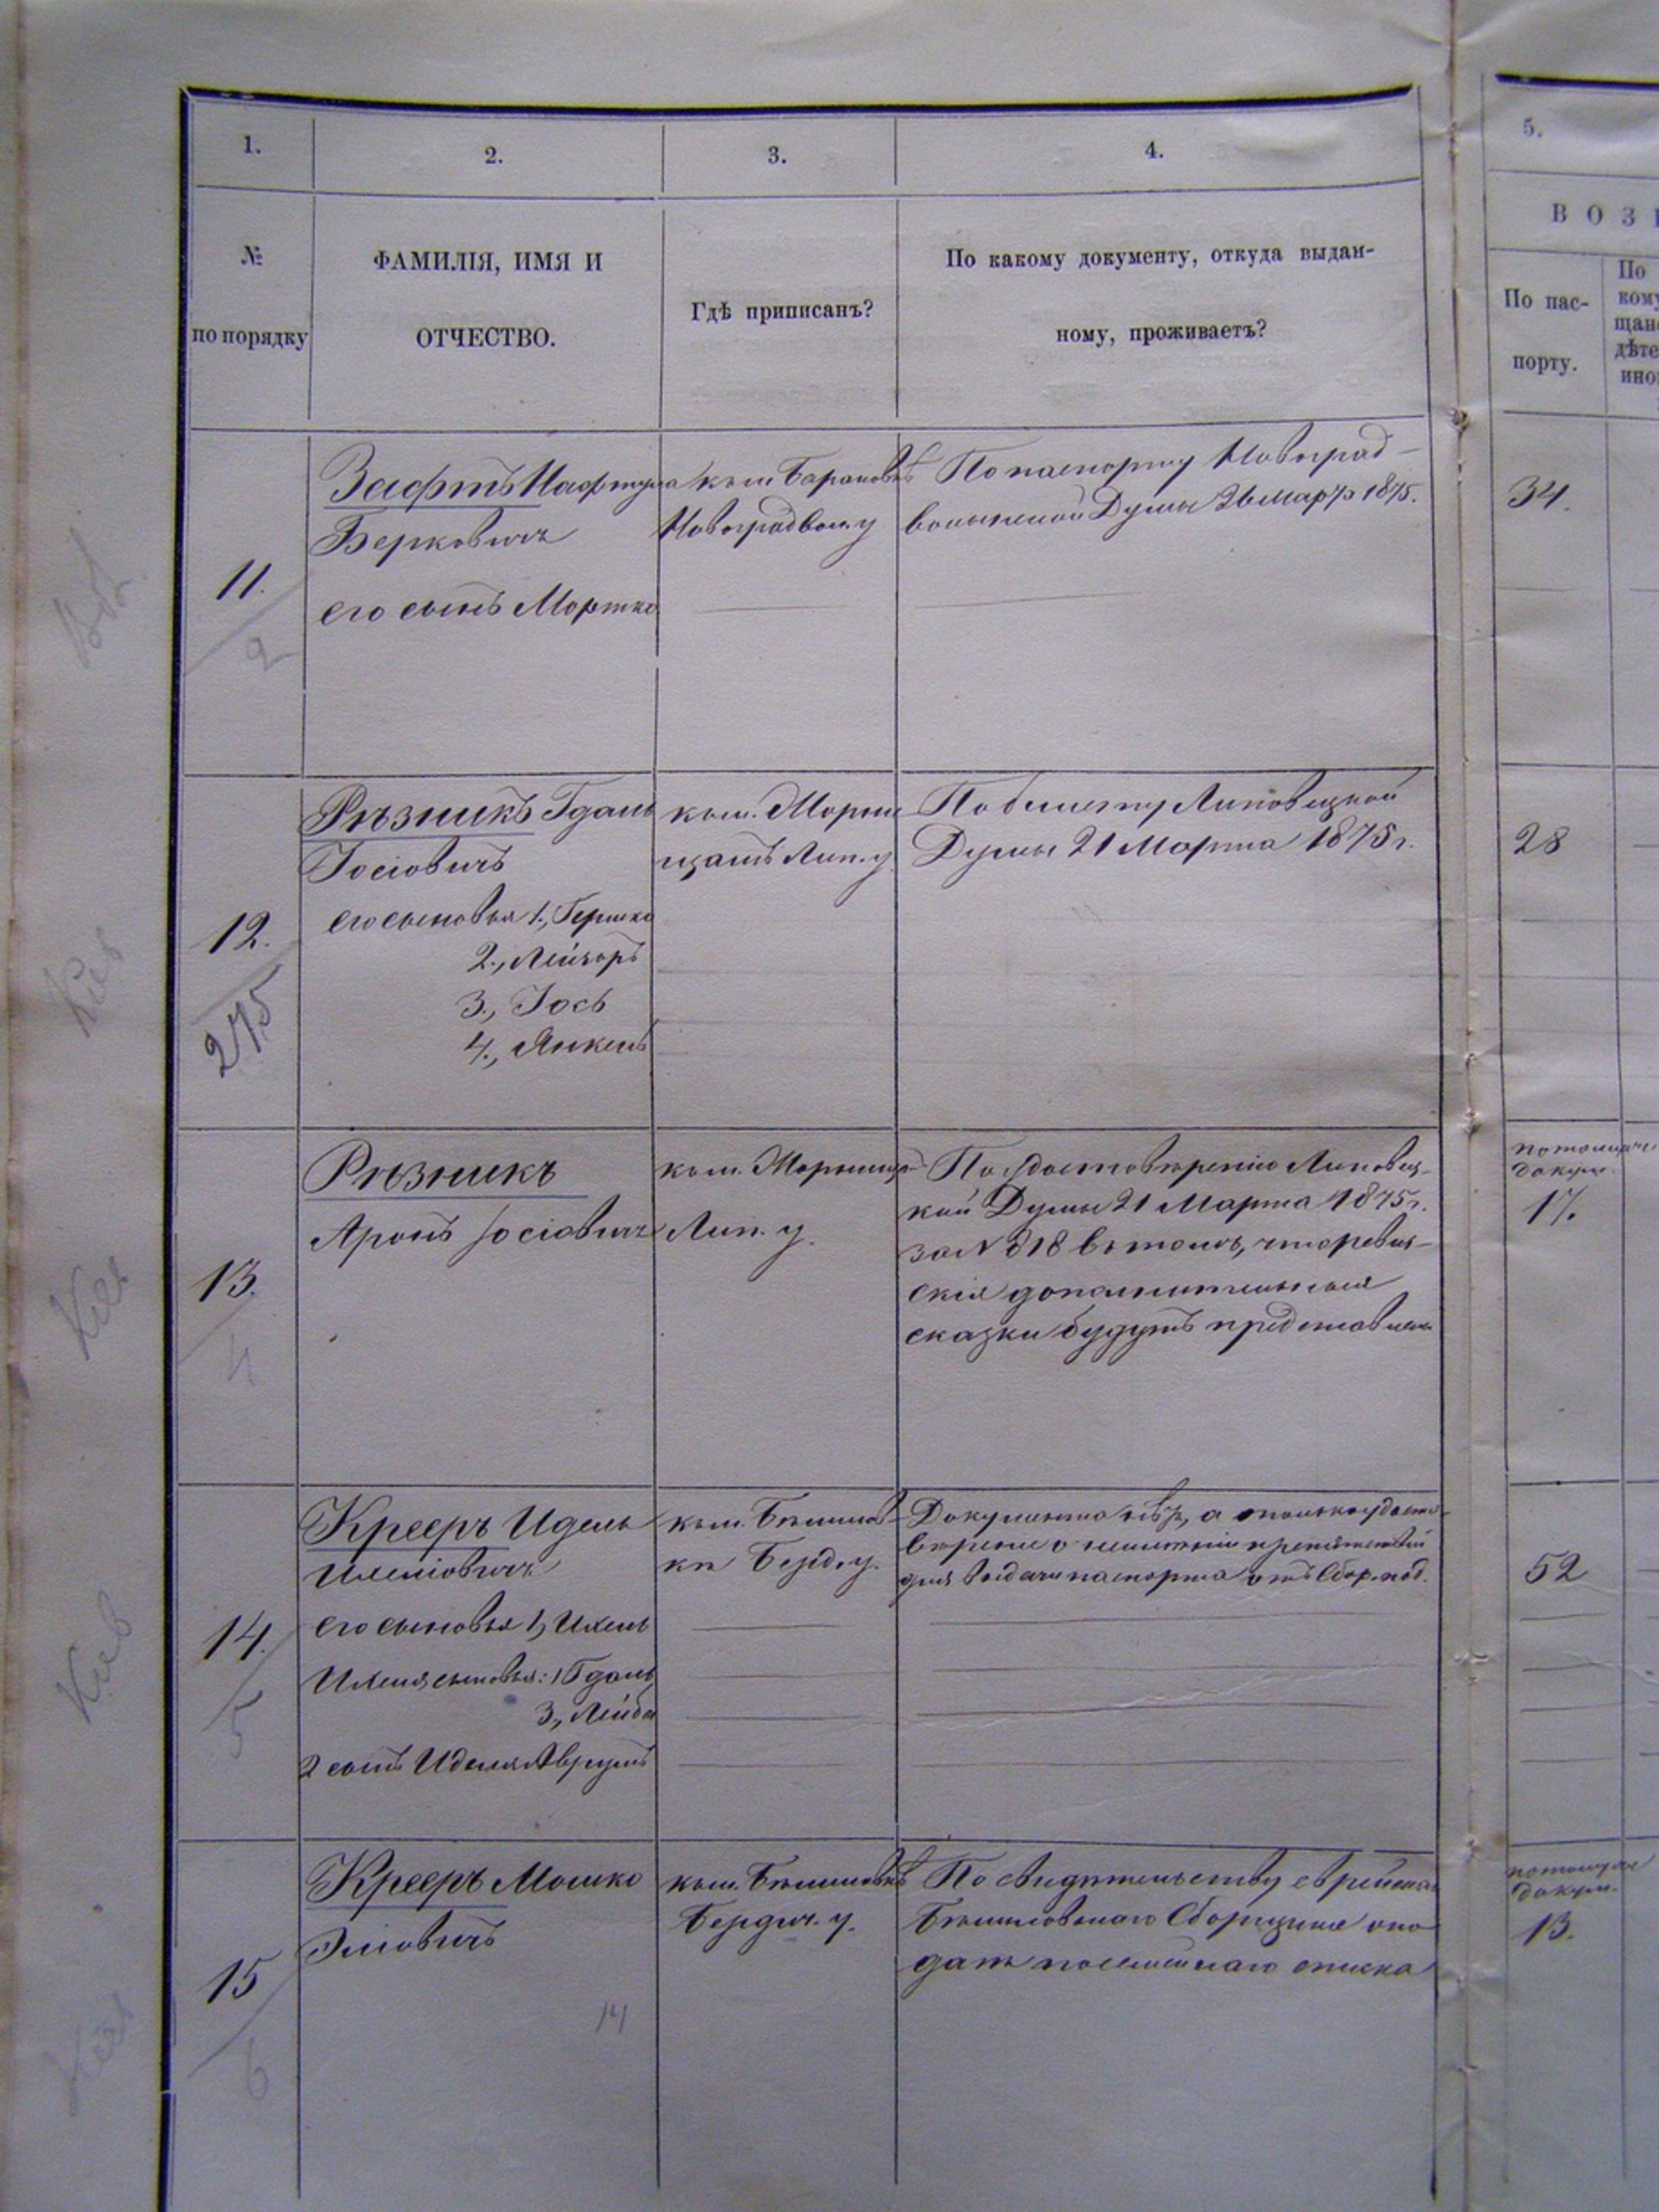 1.
2.
3.
4.
5.
№
по порядку
ФАМИЛІЯ, ИМЯ И
ОТЧЕСТВО.
Гдѣ приписанъ?
По какому документу, откуда выдан-
ному, проживаетъ?
ВОЗ
По пас-
порту.
По
ком
щан
дѣте
ино
11.
2
Зафтъ Нафтула
Берковичъ
его сынъ Мортко
къ м. Барановкѣ
Новоградвол. у
По паспорту Новоград-
волынской Думы 26 марта 1875.
34.
12.
275
Рѣзникъ Гдаль
Іосіовичъ
его сыновья 1., Гершко
2., Лейзоръ
3., Іось
4., Янкель
къ м. Моръин
цамъ Лип. у.
По билету Липовецкой
Думы 21 Марта 1875 г.
28
13.
4
Рѣзникъ
Аронъ Іосіовичъ
къ м.
Лип. у.
По удостовѣренію Липовец-
кой Думы 21 Марта 1875 г.
за № 818 въ томъ, что ревиз-
скія дополнительныя
сказки будутъ представлены
по
докум.
17.
14.
5
Крееръ Идель
Ихеліовичъ
его сыновья 1, Ихель
Ихеля сыновья: 1 Гдаль
3, Лейба
2 сынъ Иделя Аврумъ
къ м. Бѣлилов-
кѣ Берд. у.
Документа нѣтъ, а только удосто-
вѣреніе о неимѣніи препятствій
для выдачи паспорта отъ Сбор. под.
52
15
6
Крееръ Мошко
Эліовичъ
14
къ м. Бѣлиловкѣ
Бердич. у.
По свидѣтельству еврейска
Бѣлиловскаго Сборщика о по
дати посемейнаго списка
докум.
13.